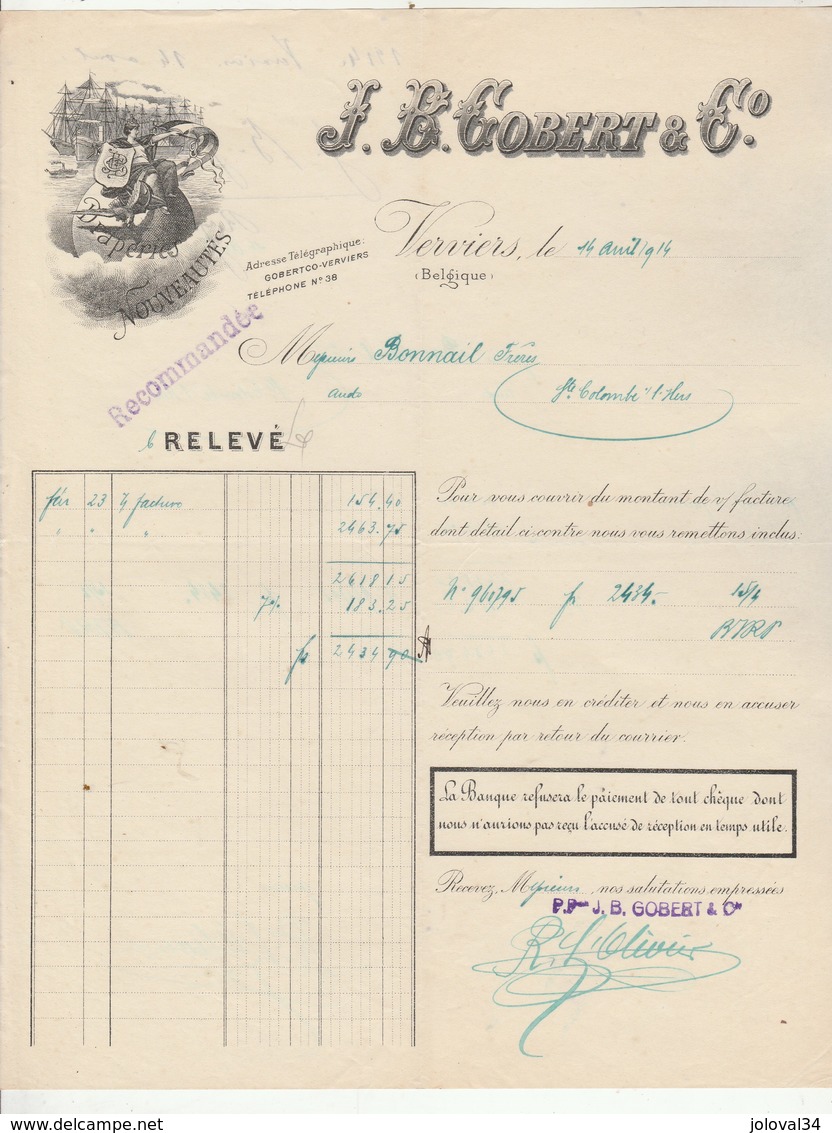 J. B. GOBERT & Co.
Draperies
NOUVEAUTÉS
Verviers, le 14 avril 1914
(Belgique)
Adresse Télégraphique:
GOBERTCO-VERVIERS
TÉLÉPHONE No 38
Recommandée
Messieurs Bonnail Frères
Aude
Ste Colombe s/ l'Hers
RELEVÉ
23 facture 154.40
" " " 2463.75
2618 15
7% 183.25
fs 2434 90
Pour vous couvrir du montant de v/ facture
dont détail ci contre nous vous remettons inclus:
No 961795 fs 2434.- 15/4
Veuillez nous en créditer et nous en accuser
réception par retour du courrier.
La Banque refusera le pâiement de tout chèque dont
nous n'aurions pas reçu l'accusé de réception en temps utile.
Recevez, Messieurs, nos salutations empressées
P.Pon J. B. GOBERT & Co
joloval34